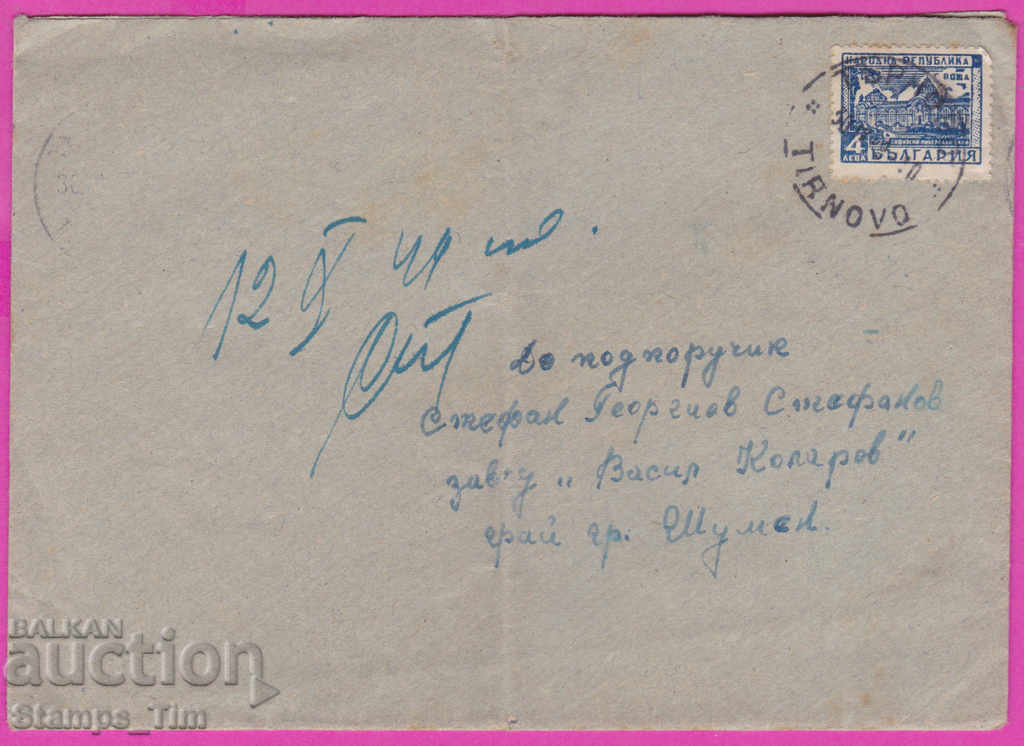 НАРОДНА РЕПУБЛИКА
ПОЩА
4
ЛЕВА
БЪЛГАРИЯ
TIRNOVO
12 X
До подпоручик
Стефан Георгиев Стефанов
завод „Васил Коларов"
край гр. Шумен.
BALKAN
auction
Stamps_Tim